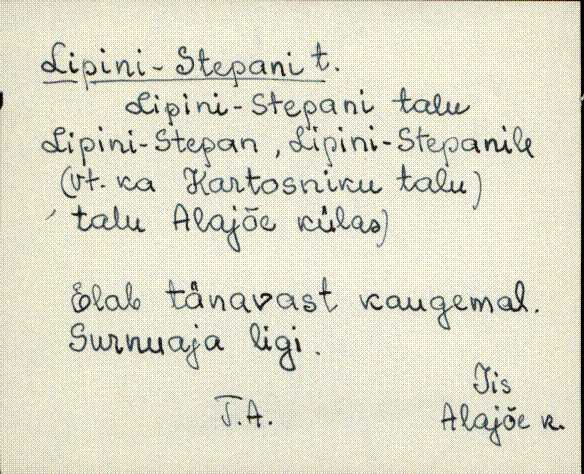 Lipini-Stepani t.
Lipini-Stepani talu
Lipini-Stepan, Lipini-Stepanile
(vt. ka Kartosniku talu)
talu Alajõe külas)
Elab tänavast kaugemal.
Surnuaja ligi.
Iis
T.A. Alajõe k.